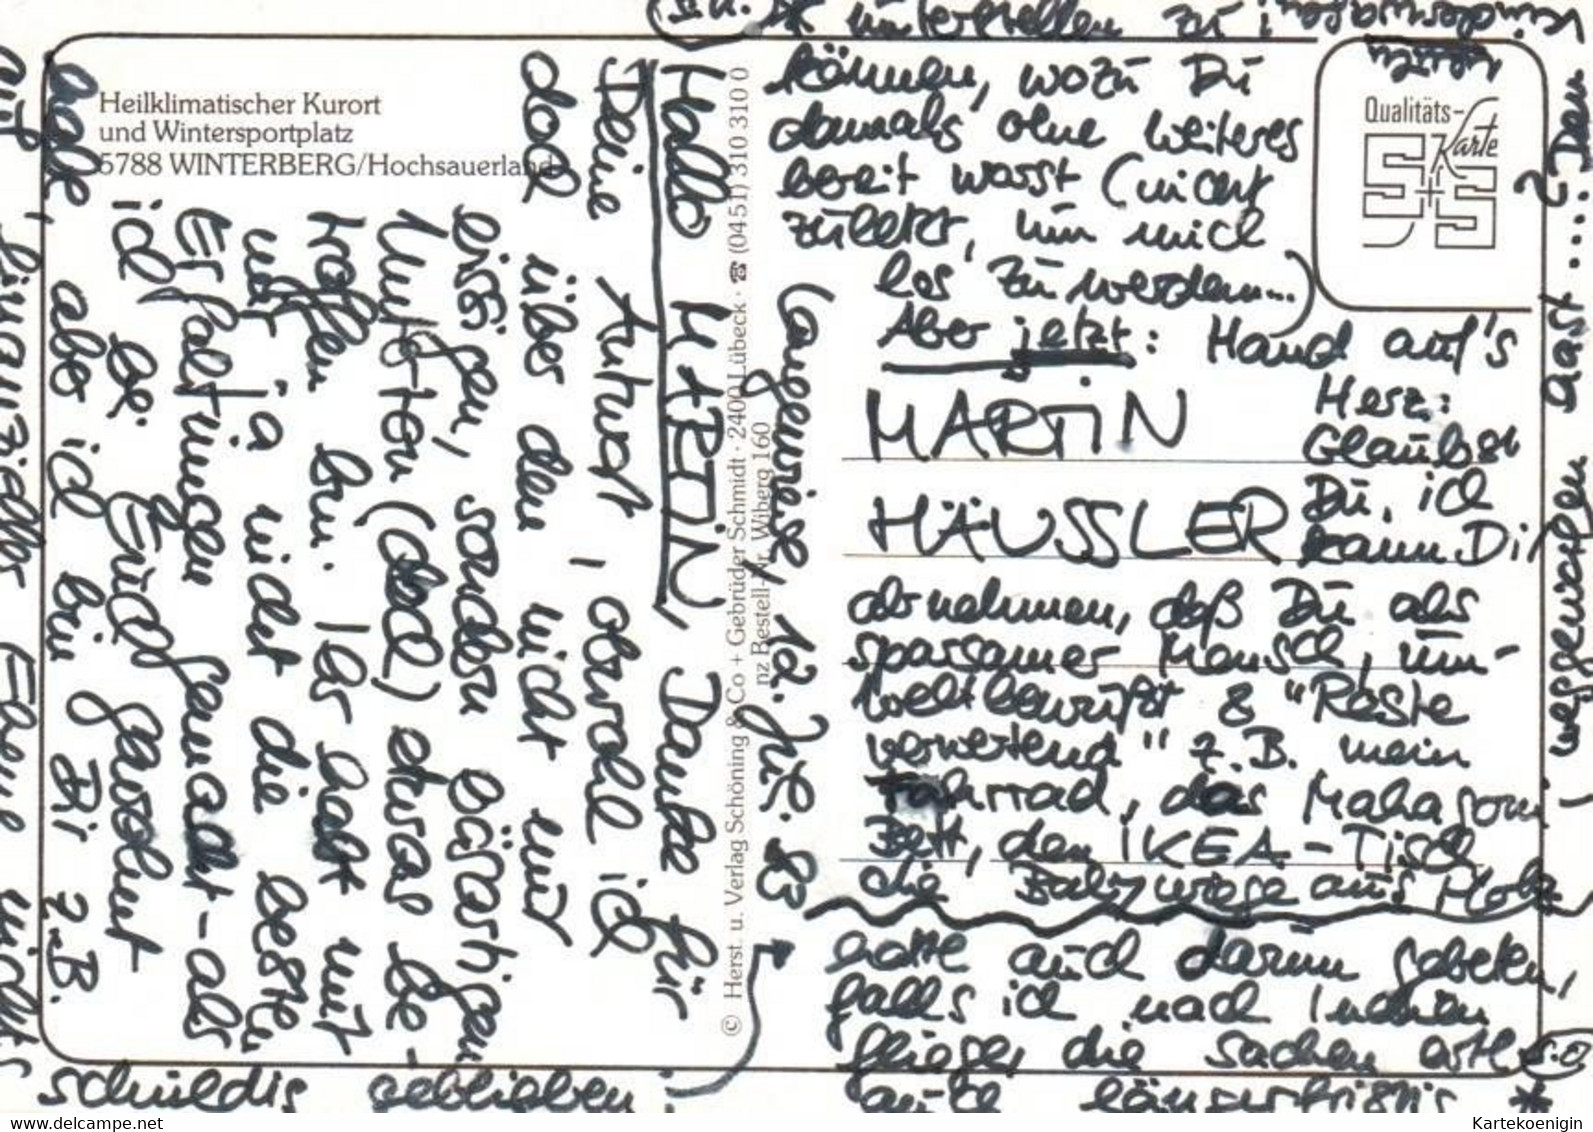 Heilklimatischer Kurort
und Wintersportplatz
5788 WINTERBERG/Hochsauerland
Qualitäts-
Karte
S+S
© Herst. u. Verlag Schöning & Co + Gebrüder Schmidt · 2400 Lübeck · ☎ (0451) 310 310 0
nz Bestell-Nr. Wiberg 160
12. Juli 83
Hallo MARTIN, Danke für
Deine Antwort, obwohl ich
doch über den nicht nur
bissigen, sondern bärsartigen
Unterton (doch) etwas be-
troffen bin. Ihr habt mit
mir ja nicht die besten
Erfahrungen gemacht - als
ich bei Euch gewohnt
habe, aber ich bin Dir z.B.
auf
nichts
schuldig geblieben!
* unterstellen zu
können, wozu Du
damals ohne weiteres
bereit warst (nicht
zuletzt, um mich
los zu werden...)
Aber jetzt: Hand auf's
Herz:
Glaubst
Du, ich
kann Dir
MARTIN
HÄUSSLER
abnehmen, daß Du als
sparsamer Mensch, um-
weltbewußt & "Reste
verwertend" z.B. mein
Fahrrad, das Mahagoni
Bett, den IKEA-Tisch
die Babywiege aus Holz
weggeworfen hast...? Den
Kinderwagen
hatte auch darum gebeten,
falls ich nach Indien
fliege, die Sachen evtl
auch längerfristig *
Kartekoenigin
delcampe.net